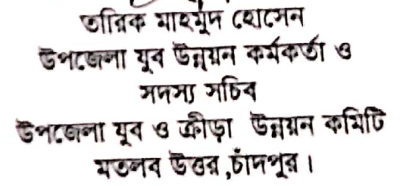 তারিক মাহমুদ হোসেন
উপজেলা যুব উন্নয়ন কর্মকর্তা ও
সদস্য সচিব
উপজেলা যুব ও ক্রীড়া উন্নয়ন কমিটি
মতলব উত্তর ,চাঁদপুর।